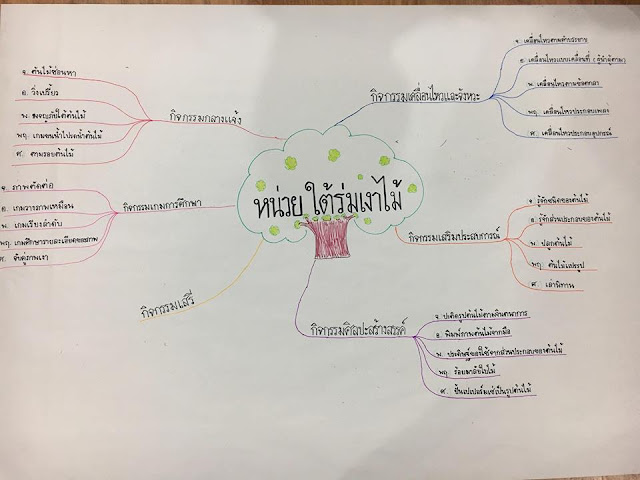 หน่วย ใต้ร่มเงาไม้
กิจกรรมเคลื่อนไหวและจังหวะ
จ. เคลื่อนไหวตามคำบรรยาย
อ. เคลื่อนไหวแบบเคลื่อนที่ (ผู้นำผู้ตาม)
พ. เคลื่อนไหวตามข้อตกลง
พฤ. เคลื่อนไหวประกอบเพลง
ศ. เคลื่อนไหวประกอบอุปกรณ์
กิจกรรมเสริมประสบการณ์
จ. รู้จักชนิดของต้นไม้
อ. รู้จักส่วนประกอบของต้นไม้
พ. ปลูกต้นไม้
พฤ. ต้นไม้แปรรูป
ศ. เล่านิทาน
กิจกรรมศิลปะสร้างสรรค์
จ. ปะติดรูปต้นไม้ตามจินตนาการ
อ. พิมพ์ภาพต้นไม้จากมือ
พ. ประดิษฐ์ของใช้จากส่วนประกอบของต้นไม้
พฤ. ร้อยมาลัยใบไม้
ศ. ปั้นเปเปอร์มาเช่เป็นรูปต้นไม้
กิจกรรมเสรี
กิจกรรมเกมการศึกษา
จ. ภาพตัดต่อ
อ. เกมวางภาพเหมือน
พ. เกมเรียงลำดับ
พฤ. เกมศึกษารายละเอียดของภาพ
ศ. จับคู่ภาพเงา
กิจกรรมกลางแจ้ง
จ. ต้นไม้ซ่อนหา
อ. วิ่งเปรี้ยว
พ. ผจญภัยใต้ต้นไม้
พฤ. เกมขนน้ำไปรดน้ำต้นไม้
ศ. ตามรอยต้นไม้